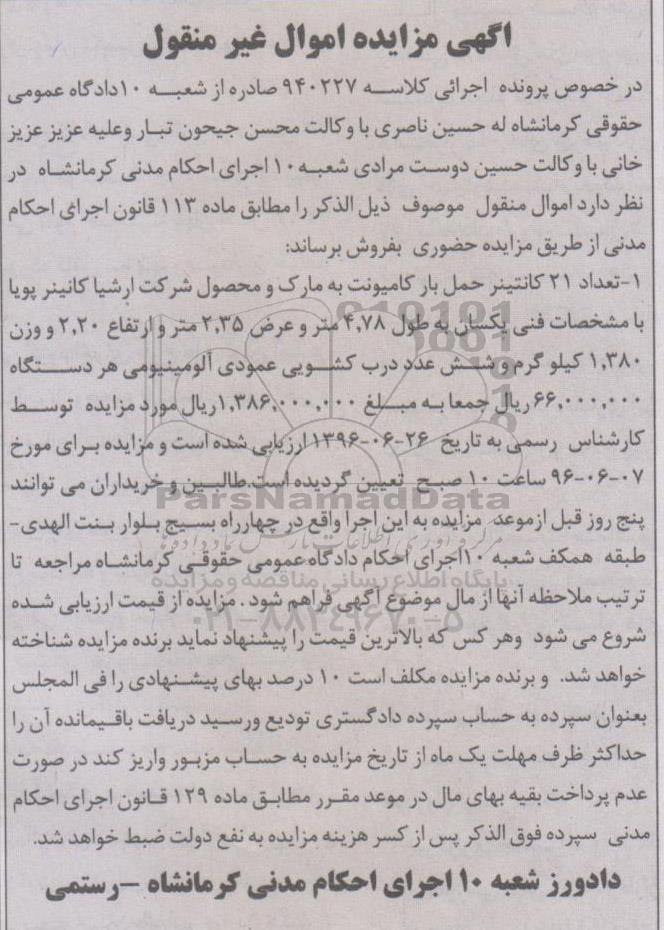 اگهی مزایده اموال غیر منقول
در خصوص پرونده اجرائی کلاسه ۹۴۰۲۲۷ صادره از شعبه ۱۰دادگاه عمومی
حقوقی کرمانشاه له حسین ناصری با وکالت محسن جیحون تبار وعلیه عزیز عزیز
خانی با وکالت حسین دوست مرادی شعبه۱۰ اجرای احکام مدنی کرمانشاه در
نظر دارد اموال منقول موصوف ذیل الذکر را مطابق ماده ۱۱۳ قانون اجرای احکام
مدنی از طریق مزایده حضوری بفروش برساند:
۱-تعداد ۲۱ کانتینر حمل بار کامیونت به مارک و محصول شرکت ارشیا کانینر پویا
با مشخصات فنی یکسان به طول ۴,۷۸ متر و عرض ۲,۳۵ متر و ارتفاع ۲,۲۰ و وزن
۱,۳۸۰ کیلو گرم و شش عدد درب کشویی عمودی آلومینیومی هر دستگاه
۶۶,۰۰۰,۰۰۰ ریال جمعا به مبلغ ۱,۳۸۶,۰۰۰,۰۰۰ریال مورد مزایده توسط
کارشناس رسمی به تاریخ ۲۶-۰۶-۱۳۹۶ ارزیابی شده است و مزایده برای مورخ
۰۷-۰۶-۹۶ ساعت ۱۰ صبح تعیین گردیده است.طالبین و خریداران می توانند
ParsNamadData
پنج روز قبل ازموعد مزایده به این اجرا واقع در چهارراه بسیج بلوار بنت الهدی-
طبقه همکف شعبه ۱۰اجرای احکام دادگاه عمومی حقوقی کرمانشاه مراجعه تا
پایگاه اطلاع رسانی مناقصه و مزایده
ترتیب ملاحظه آنها از مال موضوع آگهی فراهم شود . مزایده از قیمت ارزیابی شده
۰۲۱-۸۸۳۴۹۶۷۰-۵
شروع می شود وهر کس که بالاترین قیمت را پیشنهاد نماید برنده مزایده شناخته
خواهد شد. و برنده مزایده مکلف است ۱۰ درصد بهای پیشنهادی را فی المجلس
بعنوان سپرده به حساب سپرده دادگستری تودیع ورسید دریافت باقیمانده آن را
حداکثر ظرف مهلت یک ماه از تاریخ مزایده به حساب مزبور واریز کند در صورت
عدم پرداخت بقیه بهای مال در موعد مقرر مطابق ماده ۱۲۹ قانون اجرای احکام
مدنی سپرده فوق الذکر پس از کسر هزینه مزایده به نفع دولت ضبط خواهد شد.
دادورز شعبه ۱۰ اجرای احکام مدنی کرمانشاه -رستمی